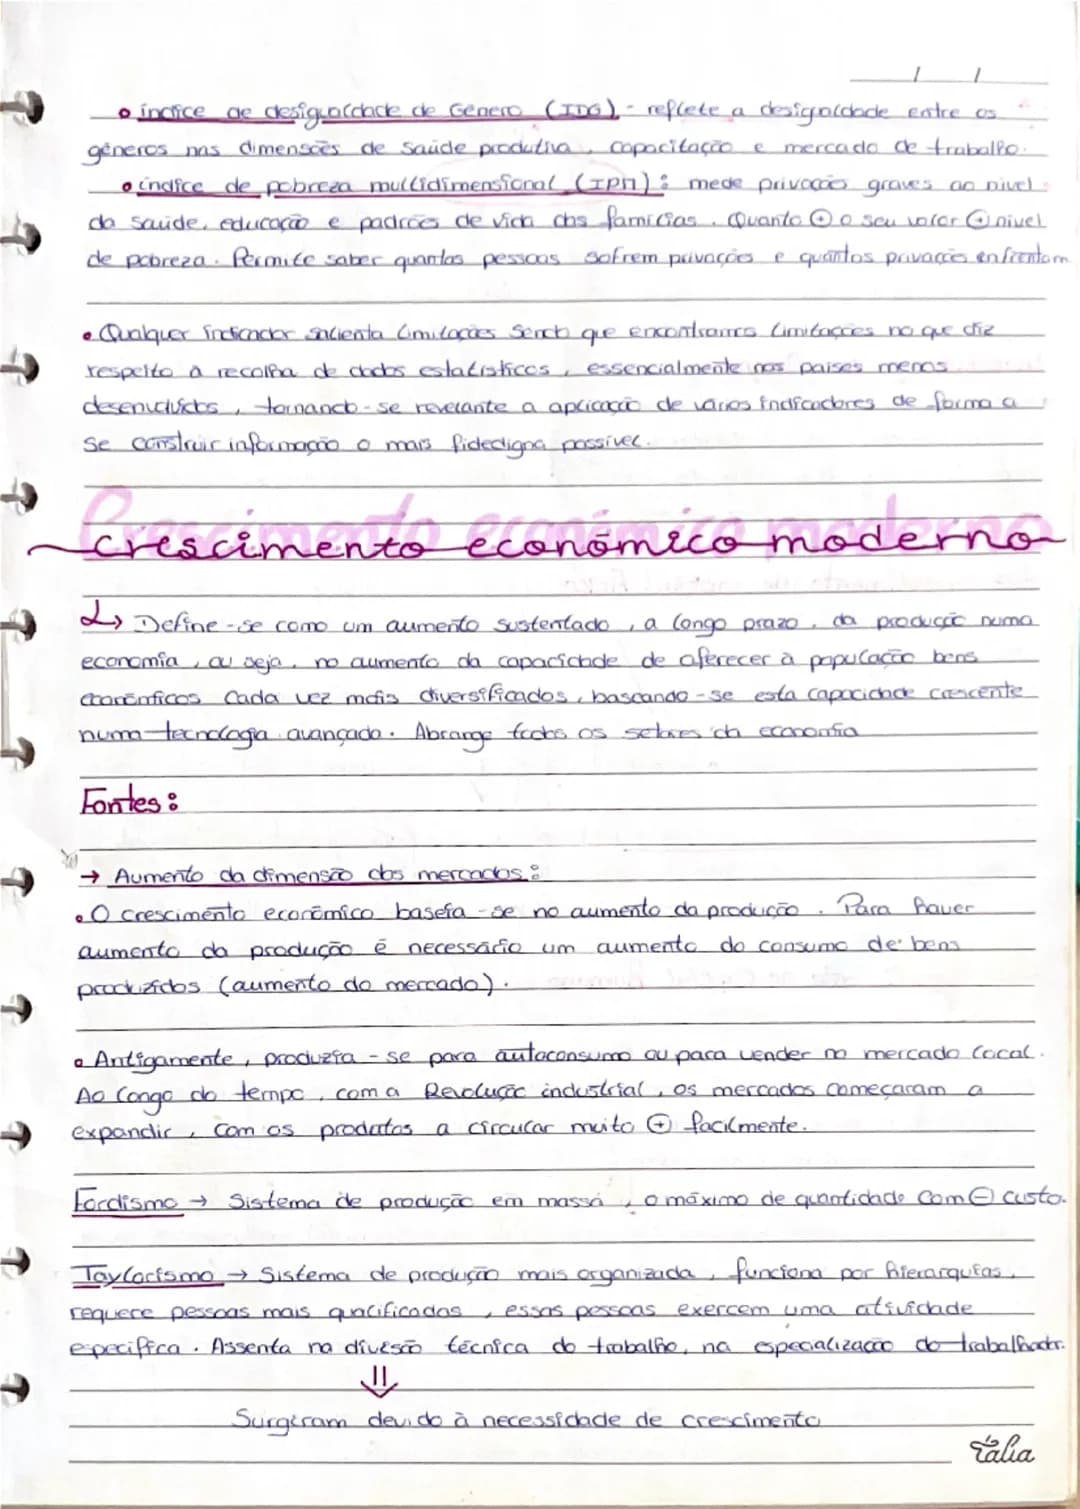 / /
• índice de desigualdade de Género (IDG) - reflete a designldade entre os
géneros nas dimensões de saúde produtiva, capacitação e mercado de trabalho.
• índice de pobreza multidimensional (IPM): mede privações graves ao nivel
da saúde, educação e padrões de vida das famílias. Quanto ⊕ o seu valor ⊕ nivel
de pobreza. Permite saber quantas pessoas sofrem privações e quantas privações enfrentam
• Qualquer indicador salienta limitações sendo que encontramos limitações no que diz
respeito à recolha de dados estatísticos, essencialmente nos paises menos
desenvolvidos, tornando-se relevante a aplicação de vários indicadores de forma a
se construir informação o mais fidedigna possível.
Crescimento económico moderno
crescimento económico moderno
↳ Define-se como um aumento sustentado, a longo prazo, da produção numa
economia, ou seja, no aumento da capacidade de oferecer à população bens
económicos cada vez mais diversificados, baseando-se esta capacidade crescente
numa tecnologia avançada. Abrange todos os setores da economia
Fontes:
→ Aumento da dimensão dos mercados:
• O crescimento económico baseia-se no aumento da produção. Para haver
aumento da produção é necessário um aumento do consumo de bens
produzidos (aumento do mercado).
• Antigamente, produzia-se para autoconsumo ou para vender no mercado local.
Ao longo do tempo, com a Revolução industrial, os mercados começaram a
expandir, com os produtos a circular muito ⊕ facilmente.
Fordismo → Sistema de produção em massa, o máximo de quantidade com ⊖ custo.
Taylorismo → Sistema de produção mais organizada, funciona por hierarquias,
requere pessoas mais qualificadas, essas pessoas exercem uma atividade
especifica. Assenta na divisão técnica do trabalho, na especialização do trabalhador.
⇓
Surgiram devido à necessidade de crescimento
Talia